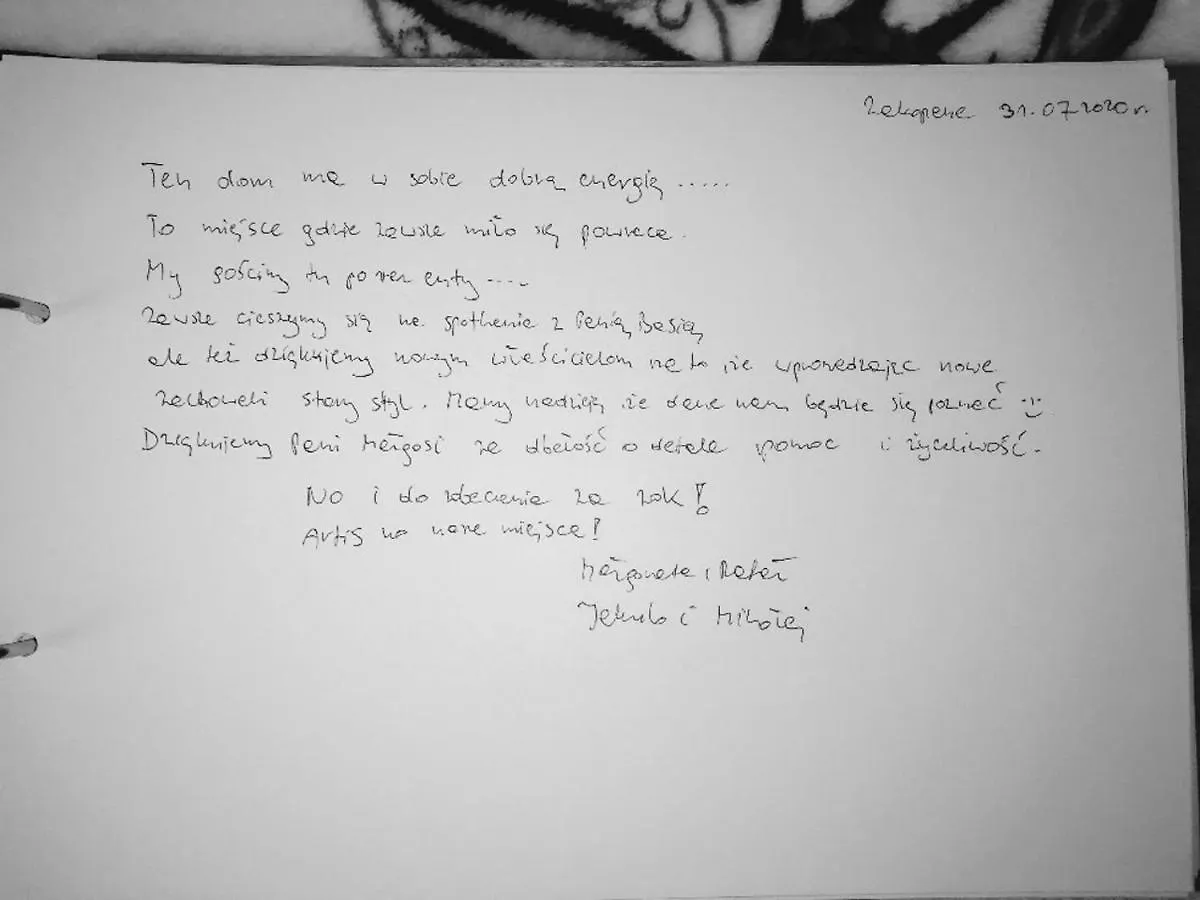 Zakopane 31.07.2020 r.
Ten dom ma w sobie dobrą energią.....
To miejsce gdzie zawsze miło się powraca.
My gościmy tu po raz enty....
Zawsze cieszymy się na spotkanie z Panią Basią
ale też dziękujemy nowym właścicielom za to, że wprowadzając nowe
zachowali stary styl. Mamy nadzieję, że dane nam będzie się poznać :)
Dziękujemy Pani Małgosi za dbałość o detale pomoc i życzliwość.
No i do zobaczenia za rok!
Artis to nasze miejsce!
Małgorzata i Rafał
Jakub i Mikołaj